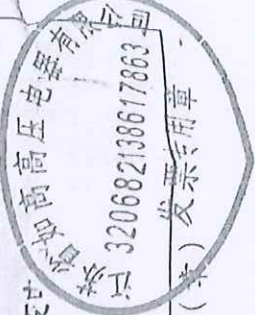 江苏省如高高压电器有限公司
320682138617863
发票专用章
（章）